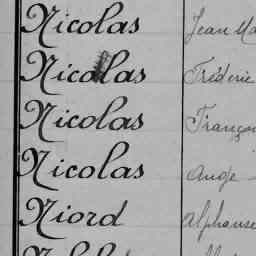 Nicolas Jean Ma
Nicolas Fréderic
Nicolas Françoi
Nicolas Ange
Niord Alphonse